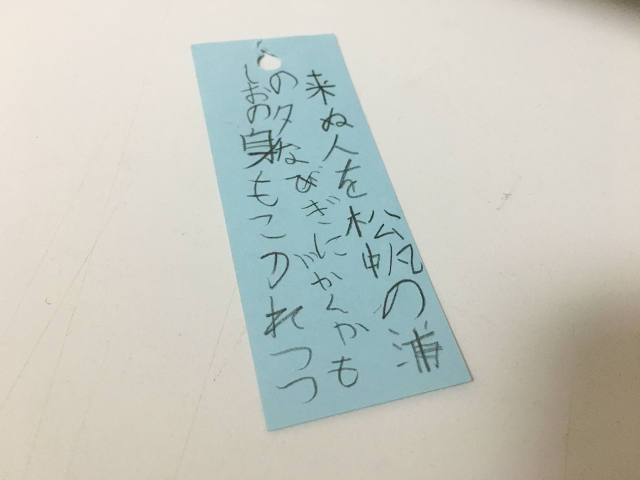 来ぬ人を松帆の浦
の夕なびぎにかくかも
しおの身もこがれつつ